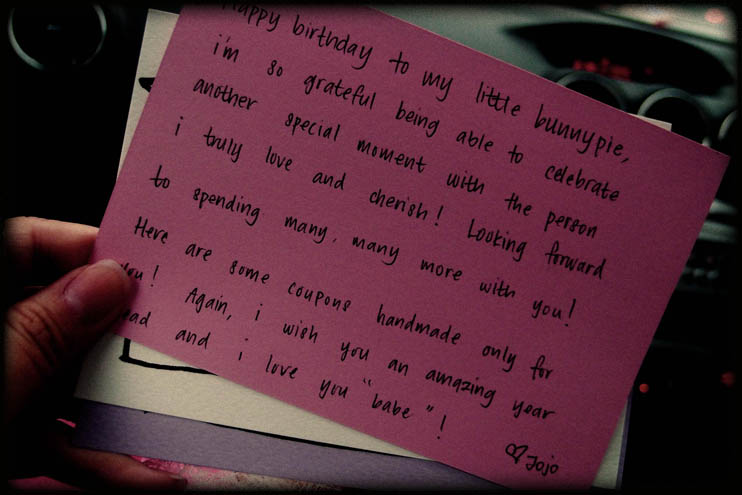 Happy birthday to my little bunnypie,
i'm so grateful being able to celebrate
another special moment with the person
i truly love and cherish! Looking forward
to spending many, many more with you!
Here are some coupons handmade only for
you! Again, i wish you an amazing year
and i love you "babe"!
Jojo